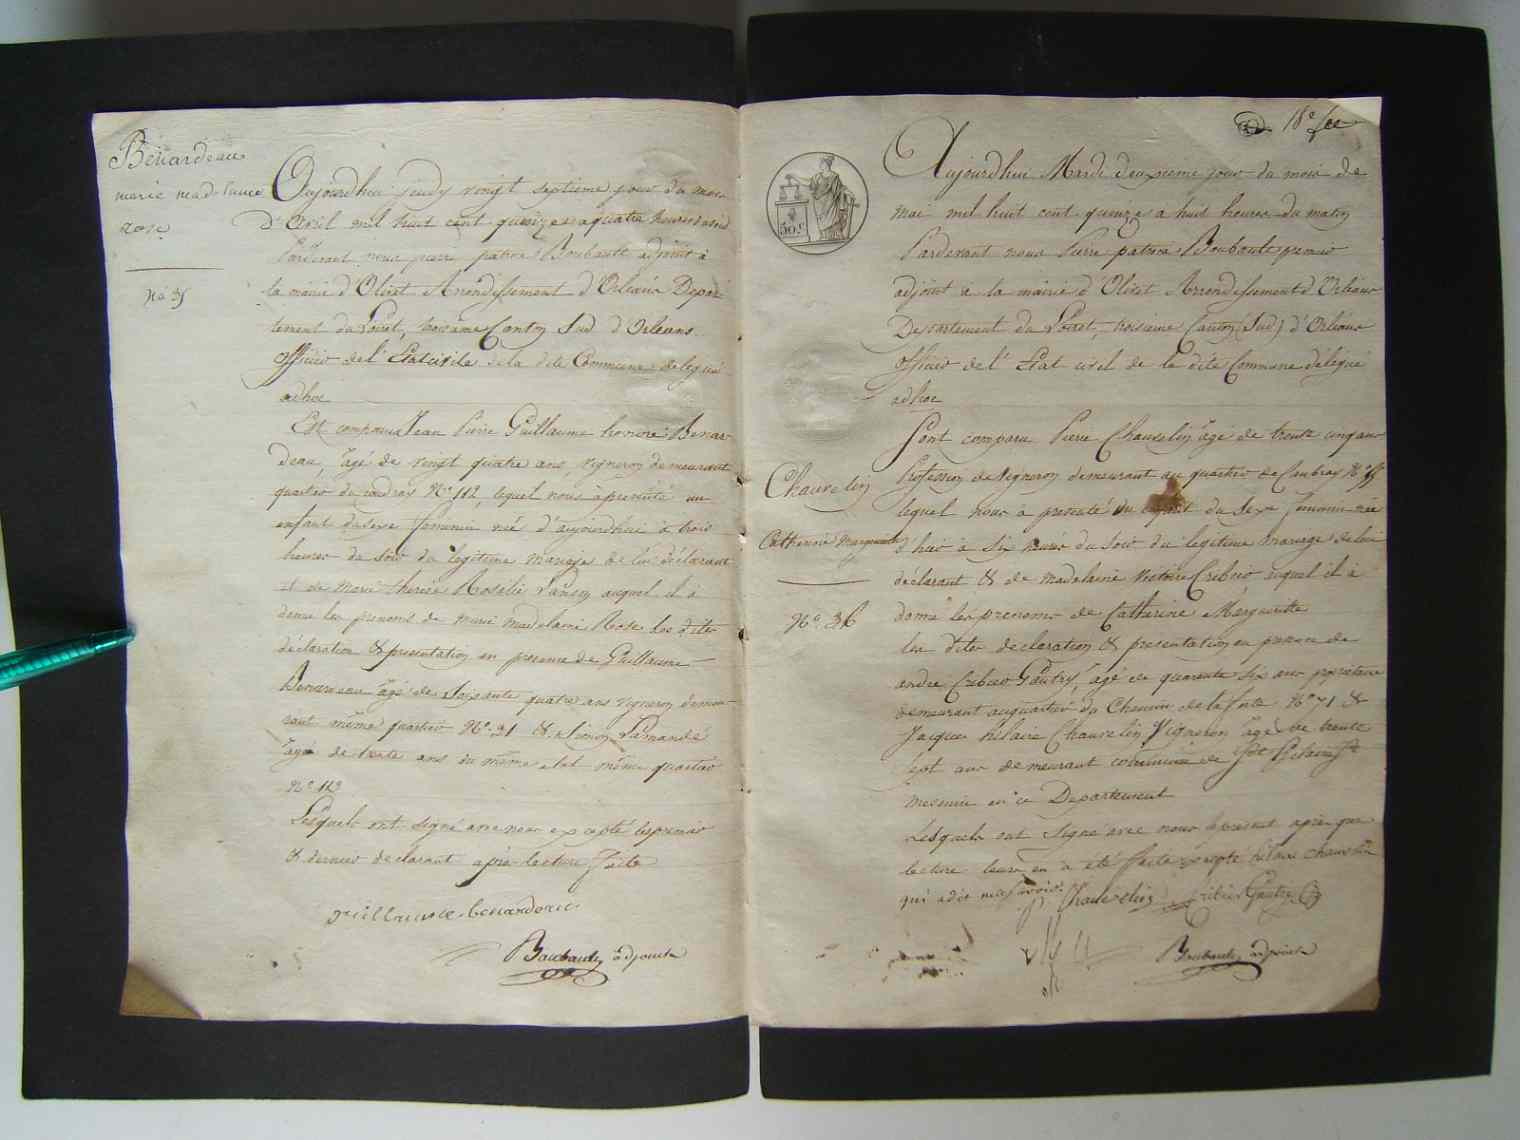 Benardeau
marie madelaine
Rose
No 35
Aujourdhui jeudy vingt septieme jour du mois
D'Avril mil huit cent quinze a quatre heures du soir
Pardevant nous pierre patrice Boubault adjoint à
la mairie d'Olivet Arrondissement d'Orléans Depar
tement du Loiret, troisieme Canton Sud d'Orleans
officier de l'Etat civile de la dite Commune délégué
adhoc
Est comparu Jean Pierre Guillaume honoré Benar
deau, âgé de vingt quatre ans, vigneron demeurant
quartier du No 112, lequel nous à presenté un
enfant du sexe feminin né d'aujourdhui à trois
heures du soir du legitime mariage de lui déclarant
et de Marie therese Rosalie auquel il à
donné les prenoms de marie madelaine Rose les dites
déclaration & presentation en presence de Guillaume
Benardeau âgé de soixante quatre ans vigneron demeu
rant même quartier No 31 & Simon Lamandé
âgé de trente ans du même etat même quartier
No 113
Lesquels ont signé avec nous excepté le premier
& dernier declarant après lecture faite
guillaume benardeau
Boubault adjoint
18e
50 c
Aujourdhui Mardi deuxieme jour du mois de
mai mil huit cent quinze à huit heures du matin
Pardevant nous Pierre patrice Boubault premier
adjoint à la mairie d'Olivet Arrondissement d'Orléans
Departement du Loiret, troisieme Canton (Sud) d'Orléans
officier de l'Etat civil de la dite Commune délégué
adhoc
Sont comparu Pierre Chauvelin âgé de trente cinq ans
Chauvelin
Profession de Vigneron demeurant au quartier de Caubray No
lequel nous à presenté un enfant du sexe feminin née
Catherine Marguerite
d'hier à six heures du soir du legitime mariage de lui
déclarant & de madelaine Victoire Cribier auquel il à
No 36
donné les prenoms de Catherine Marguerite
les dites declaration & presentation en presence de
andré Cribier Gautry, âgé de quarante six ans proprietaire
demeurant au quartier du Chemin de la ferté No 71 &
Jacques hilaire Chauvelin Vigneron âgé de trente
sept ans demeurant commune de St hilaire St
mesmin en ce Departement
Lesquels ont signé avec nous le present après que
lecture leur en à été faite excepté hilaire chauvelin
qui a dit ne le savoir.
P. Chauvelin Cribier Gautry
Boubault adjoint